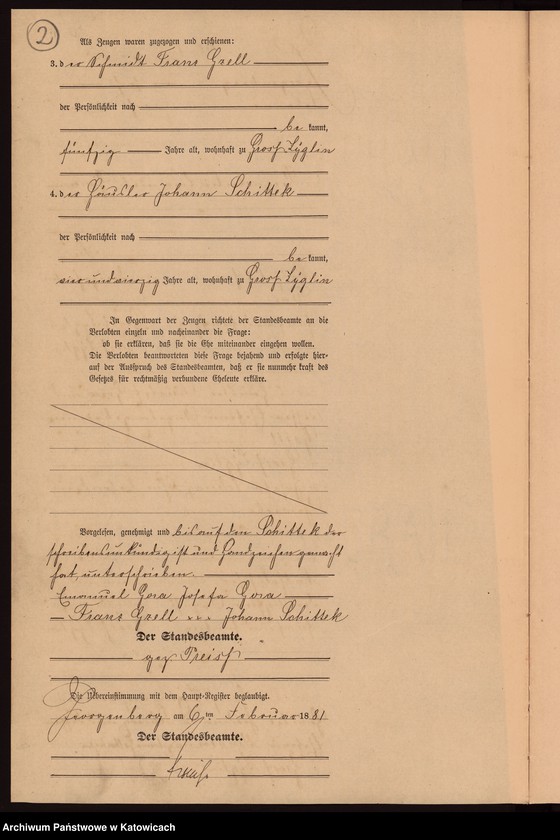 2
Als Zeugen waren zugezogen und erschienen:
3. der Schmidt Franz Grell
der Persönlichkeit nach
be kannt,
fünfzig Jahre alt, wohnhaft zu Gross Zyglin
4. der Häusler Johann Schittek
der Persönlichkeit nach
be kannt,
vier und vierzig Jahre alt, wohnhaft zu Gross Zyglin
In Gegenwart der Zeugen richtete der Standesbeamte an die
Verlobten einzeln und nacheinander die Frage:
ob sie erklären, daß sie die Ehe miteinander eingehen wollen.
Die Verlobten beantworteten diese Frage bejahend und erfolgte hier-
auf der Ausspruch des Standesbeamten, daß er sie nunmehr kraft des
Gesetzes für rechtmäßig verbundene Eheleute erkläre.
Vorgelesen, genehmigt und bis auf den Schittek der
schreibensunkündig ist und Handzeichen gemacht
hat, unterschrieben.
Emanuel Gora Josefa Gora
Franz Grell x x x Johann Schittek
Der Standesbeamte.
gez Preiss
Die Übereinstimmung mit dem Haupt-Register beglaubigt.
Georgenberg am 6 ten Februar 1881
Der Standesbeamte.
Archiwum Państwowe w Katowicach